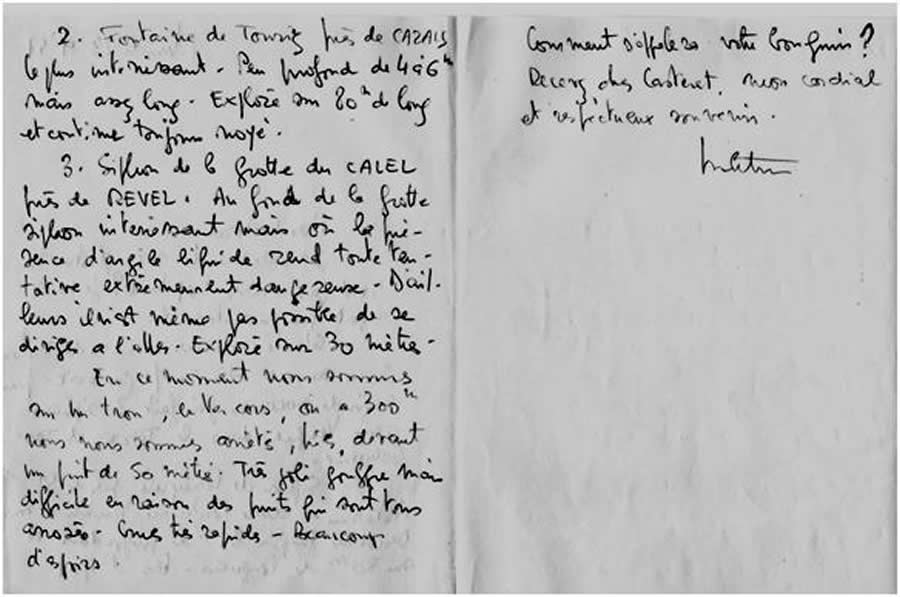 2. Fontaine de Touriz près de CAZALS
le plus intéressant. Peu profond de 4 à 6 m
mais assez long. Exploré sur 80 m de long
et continue toujours noyé.
3. Siphon de la grotte du CALEL
près de REVEL. Au fond de la grotte
siphon intéressant mais où la pré-
sence d'argile liquide rend toute ten-
tative extrêmement dangereuse. D'ail-
leurs il n'est même pas possible de se
diriger a l'aller. Exploré sur 30 mètres.
En ce moment nous sommes
sur un trou, le Vercors, on a 300 m
nous nous sommes arrêté, hier, devant
un puit de 50 mètres. Très joli gouffre mais
difficile en raison des puits qui sont tous
arrosés. Crues très rapides - Beaucoup
d'espoirs.
Comment s'appelera votre bouquin?
Recevez cher Casteret, mon cordial
et respectueux souvenir.